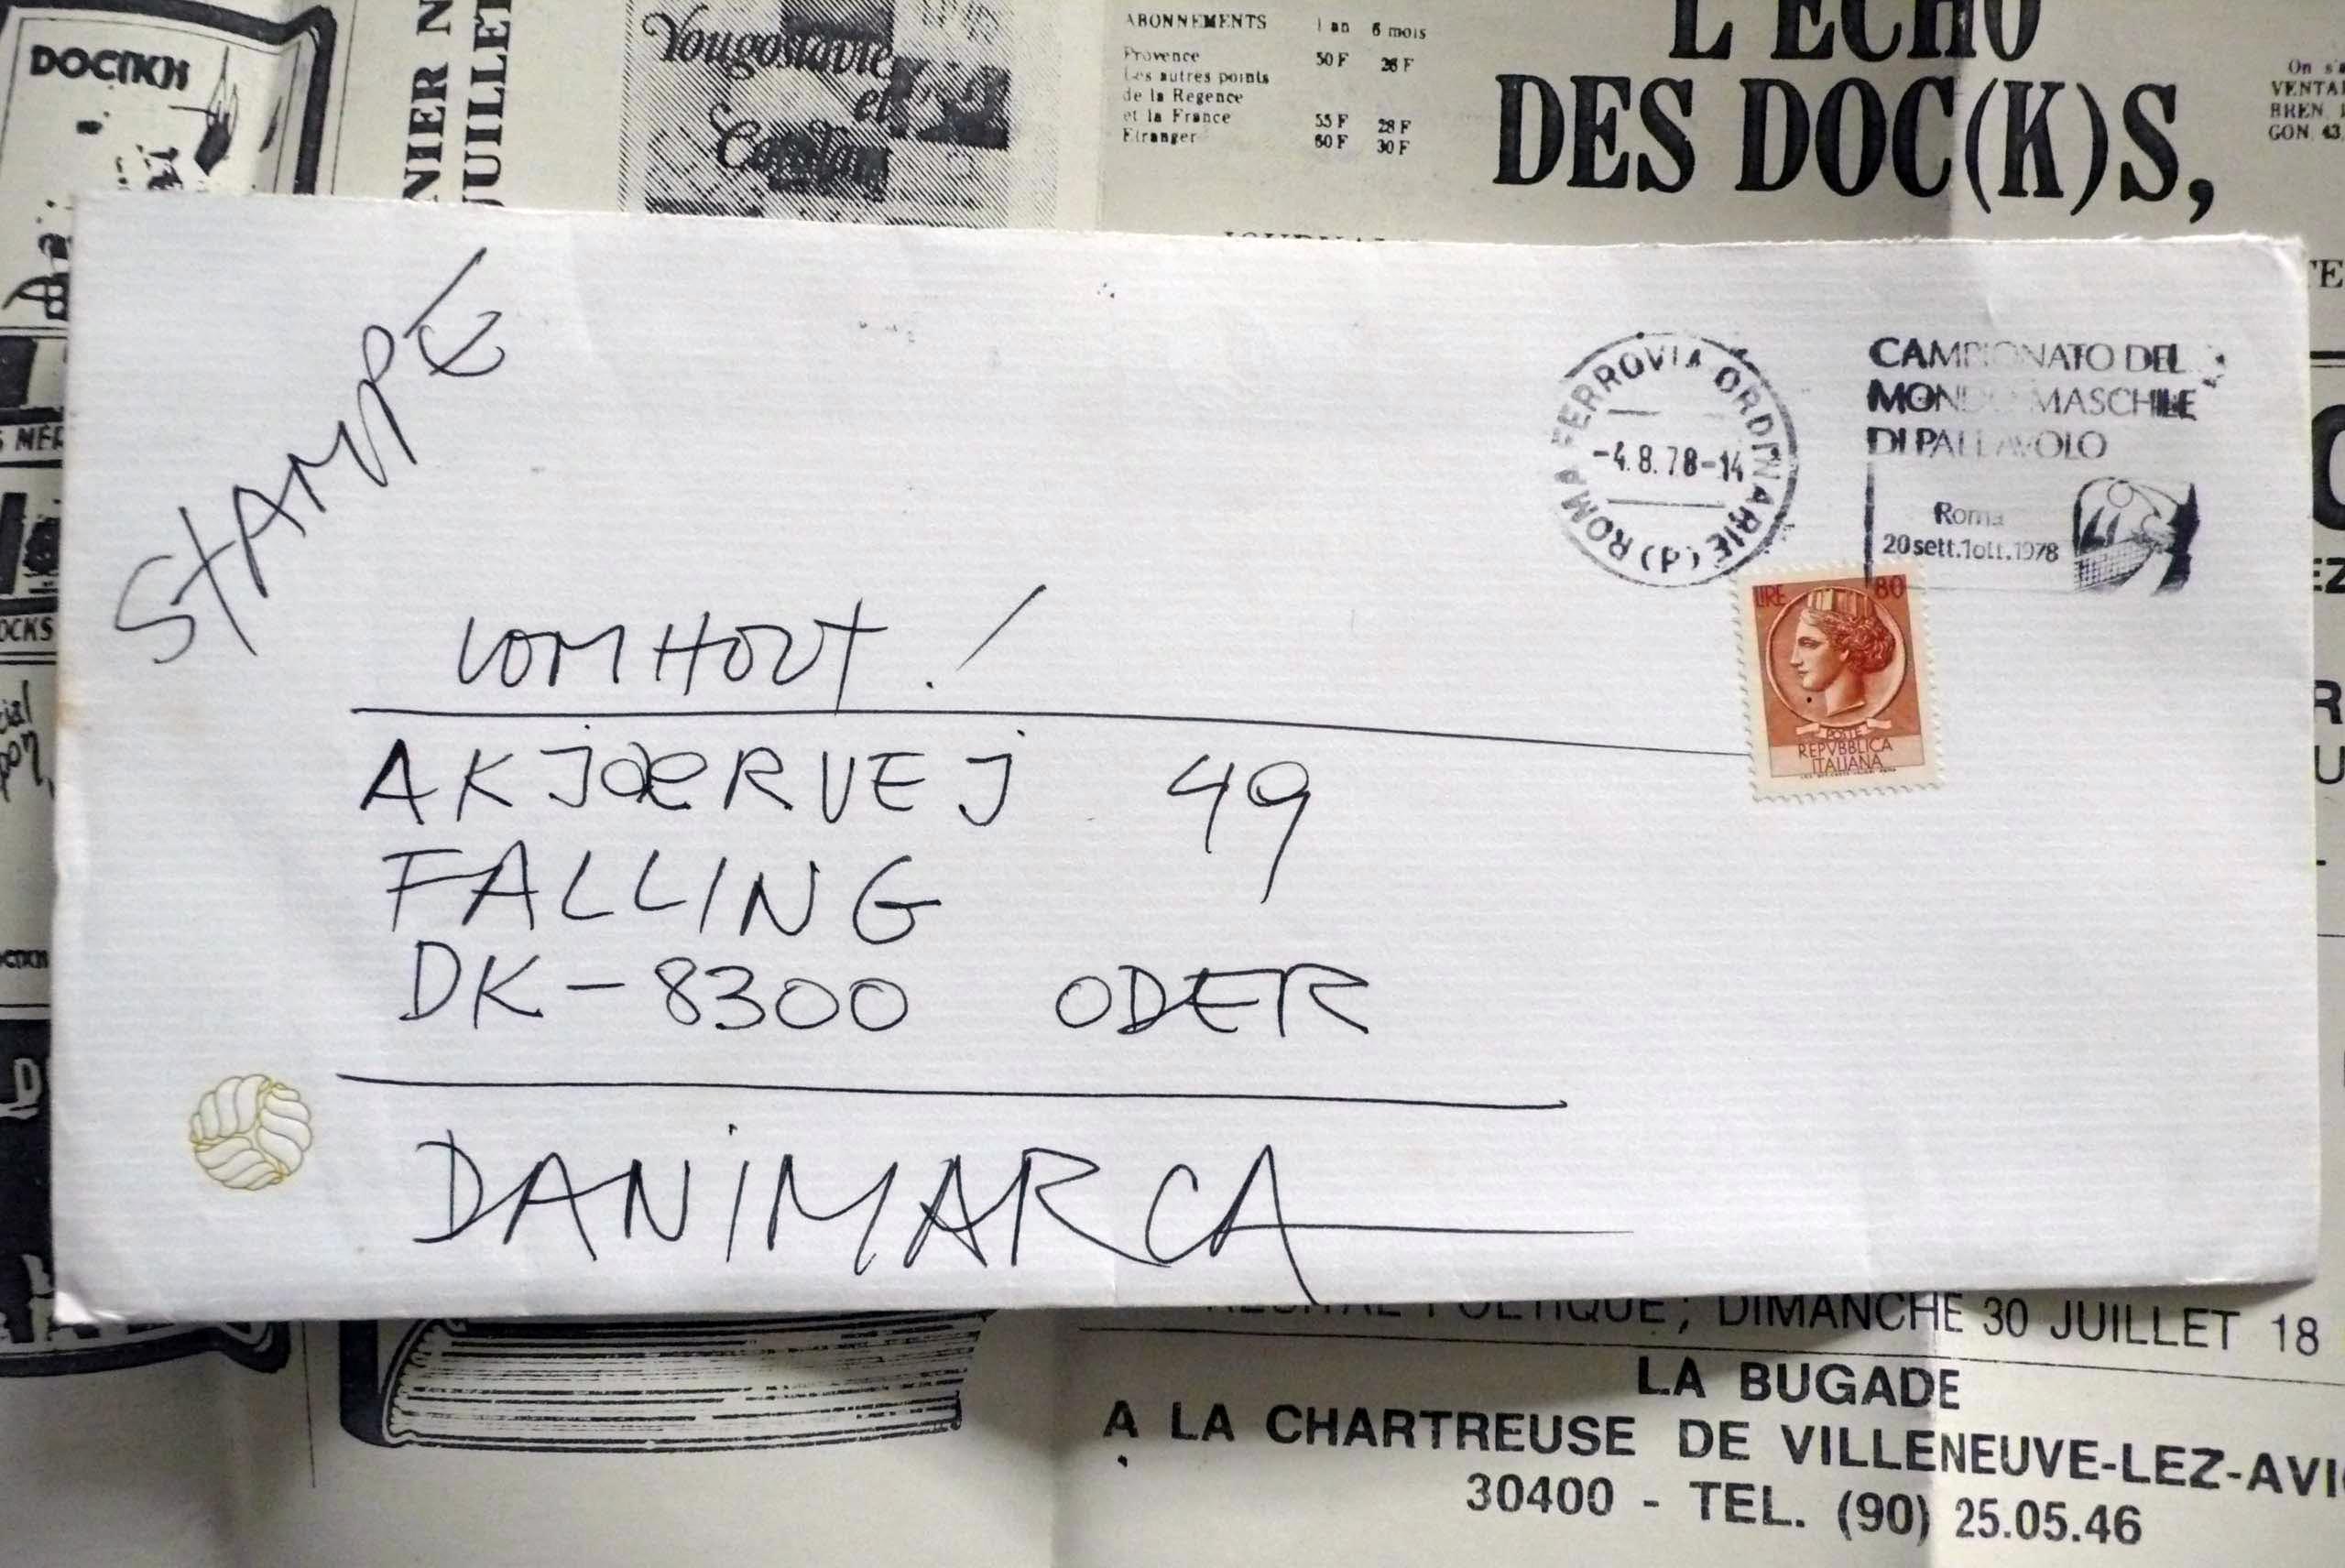 DOC(K)S
NIER N
JUILLET
Yougoslavie
et
ABONNEMENTS 1 an 6 mois
Provence 50 F 26 F
Les autres points
de la Regence
et la France 55 F 28 F
Etranger 60 F 30 F
L'ECHO
DES DOC(K)S,
On s'a
VENTAI
BREN,
GON. 43
STAMPE
ROMA FERROVIA ORDINARIE (P)
-4.8.78-14
CAMPIONATO DEL
MONDO MASCHILE
DI PALLAVOLO
Roma
20 sett.1ott.1978
LIRE 80
POSTE
REPVBBLICA
ITALIANA
LOMHOLT!
AKJÆRVEJ 49
FALLING
DK-8300 ODER
DANIMARCA
OCKS
RECITAL POETIQUE; DIMANCHE 30 JUILLET 18
LA BUGADE
A LA CHARTREUSE DE VILLENEUVE-LEZ-AVI
30400 - TEL. (90) 25.05.46